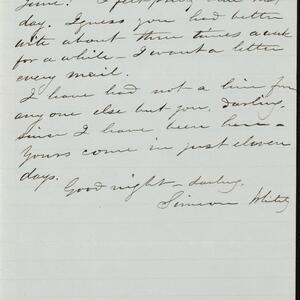 time. I
day. I guess you had better
write about three times a week
for a while – I want a letter
every mail.
I have had not a line from
any one else but you, darling,
since I have been here –
Yours come in just eleven
days.
Good night – darling.
Simeon Whitely